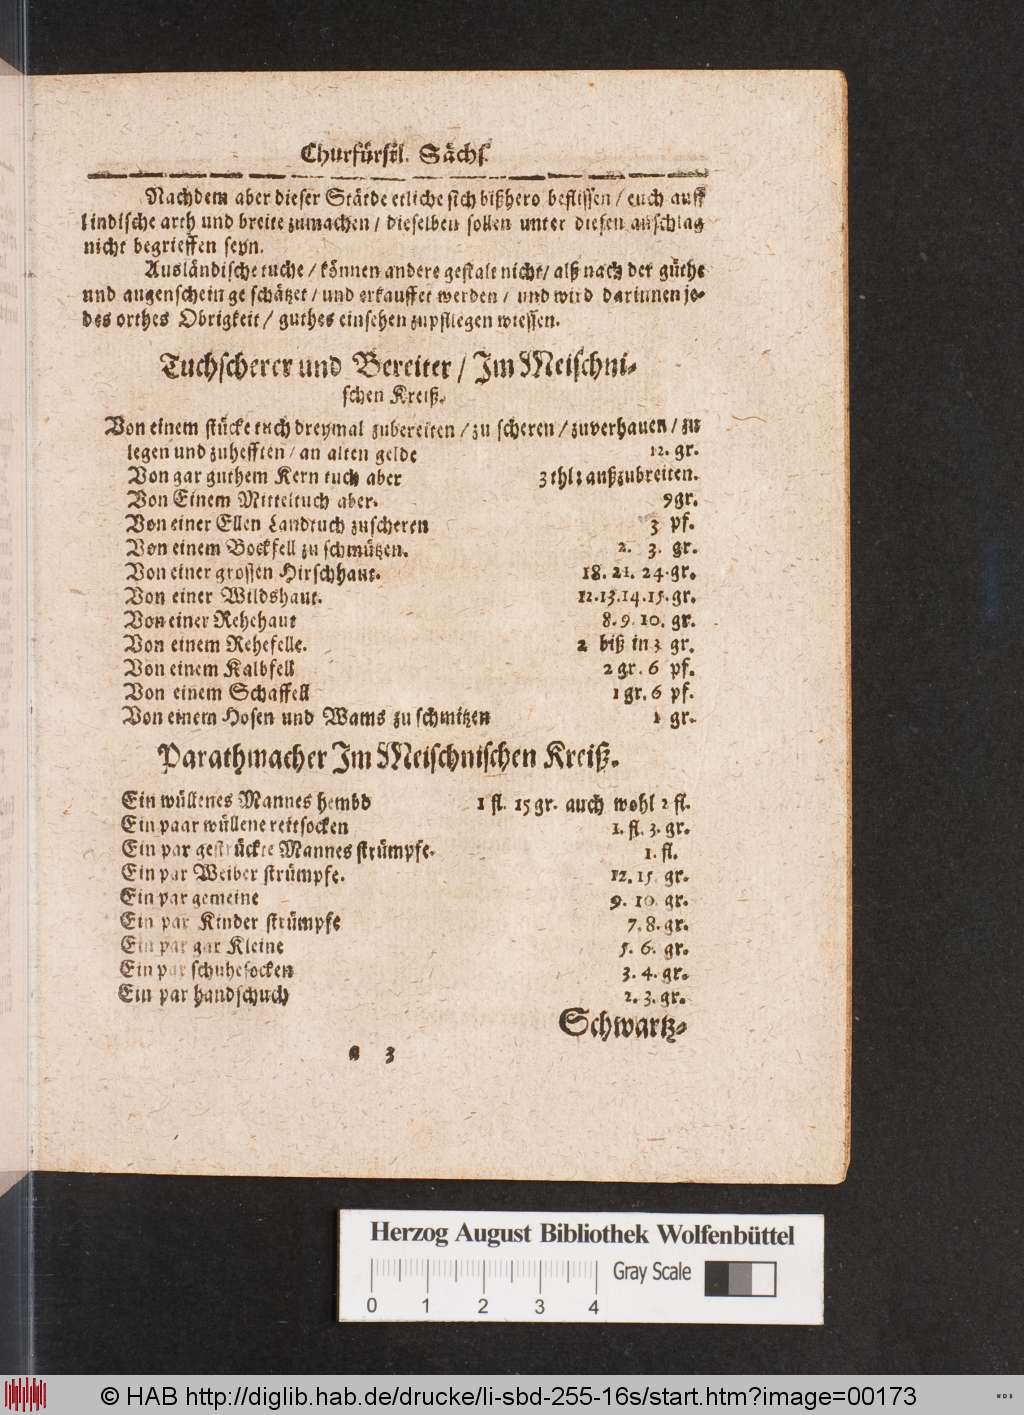 Churfürstl. Sächs.
Nachdem aber dieser Städte etliche sich bißhero beflissen / tuch auff
lindische arth und breite zumachen / dieselben sollen unter diesen anschlag
nicht begrieffen seyn.
Ausländische tuche / können andere gestalt nicht / alß nach der güthe
und augenschein geschätzet / und erkauffet werden / und wird darinnen je-
des orthes Obrigkeit / guthes einsehen zupflegen wiessen.
Tuchscherer und Bereiter / Im Meischni-
schen Kreiß.
Von einem stücke tuch dreymal zubereiten / zu scheren / zuverhauen / zu
legen und zuhefften / an alten gelde 12. gr.
Von gar guthem Kern tuch aber 3 thl: außzubreiten.
Von Einem Mitteltuch aber. 9gr.
Von einer Ellen Landtuch zuscheren 3 pf.
Von einem Bockfell zu schmützen. 2. 3. gr.
Von einer grossen Hirschhaut. 18. 21. 24. gr.
Von einer Wildshaut. 12.13.14.15. gr.
Von einer Rehehaut 8. 9. 10. gr.
Von einem Rehefelle. 2 biß in 3 gr.
Von einem Kalbfell 2 gr. 6 pf.
Von einem Schaffell 1 gr. 6 pf.
Von einem Hosen und Wams zu schmitzen 1 gr.
Parathmacher Im Meischnischen Kreiß.
Ein wüllenes Mannes hembd 1 fl. 15 gr. auch wohl 2 fl.
Ein paar wüllene reitsocken 1. fl. 3. gr.
Ein par gestrückte Mannes strümpfe. 1. fl.
Ein par Weiber strümpfe. 12. 15. gr.
Ein par gemeine 9. 10. gr.
Ein par Kinder strümpfe 7. 8. gr.
Ein par gar Kleine 5. 6. gr.
Ein par schuhesocken 3. 4. gr.
Ein par handschuch 2. 3. gr.
Schwartz-
a 3
Herzog August Bibliothek Wolfenbüttel
Gray Scale
0 1 2 3 4
© HAB http://diglib.hab.de/drucke/li-sbd-255-16s/start.htm?image=00173
WDB